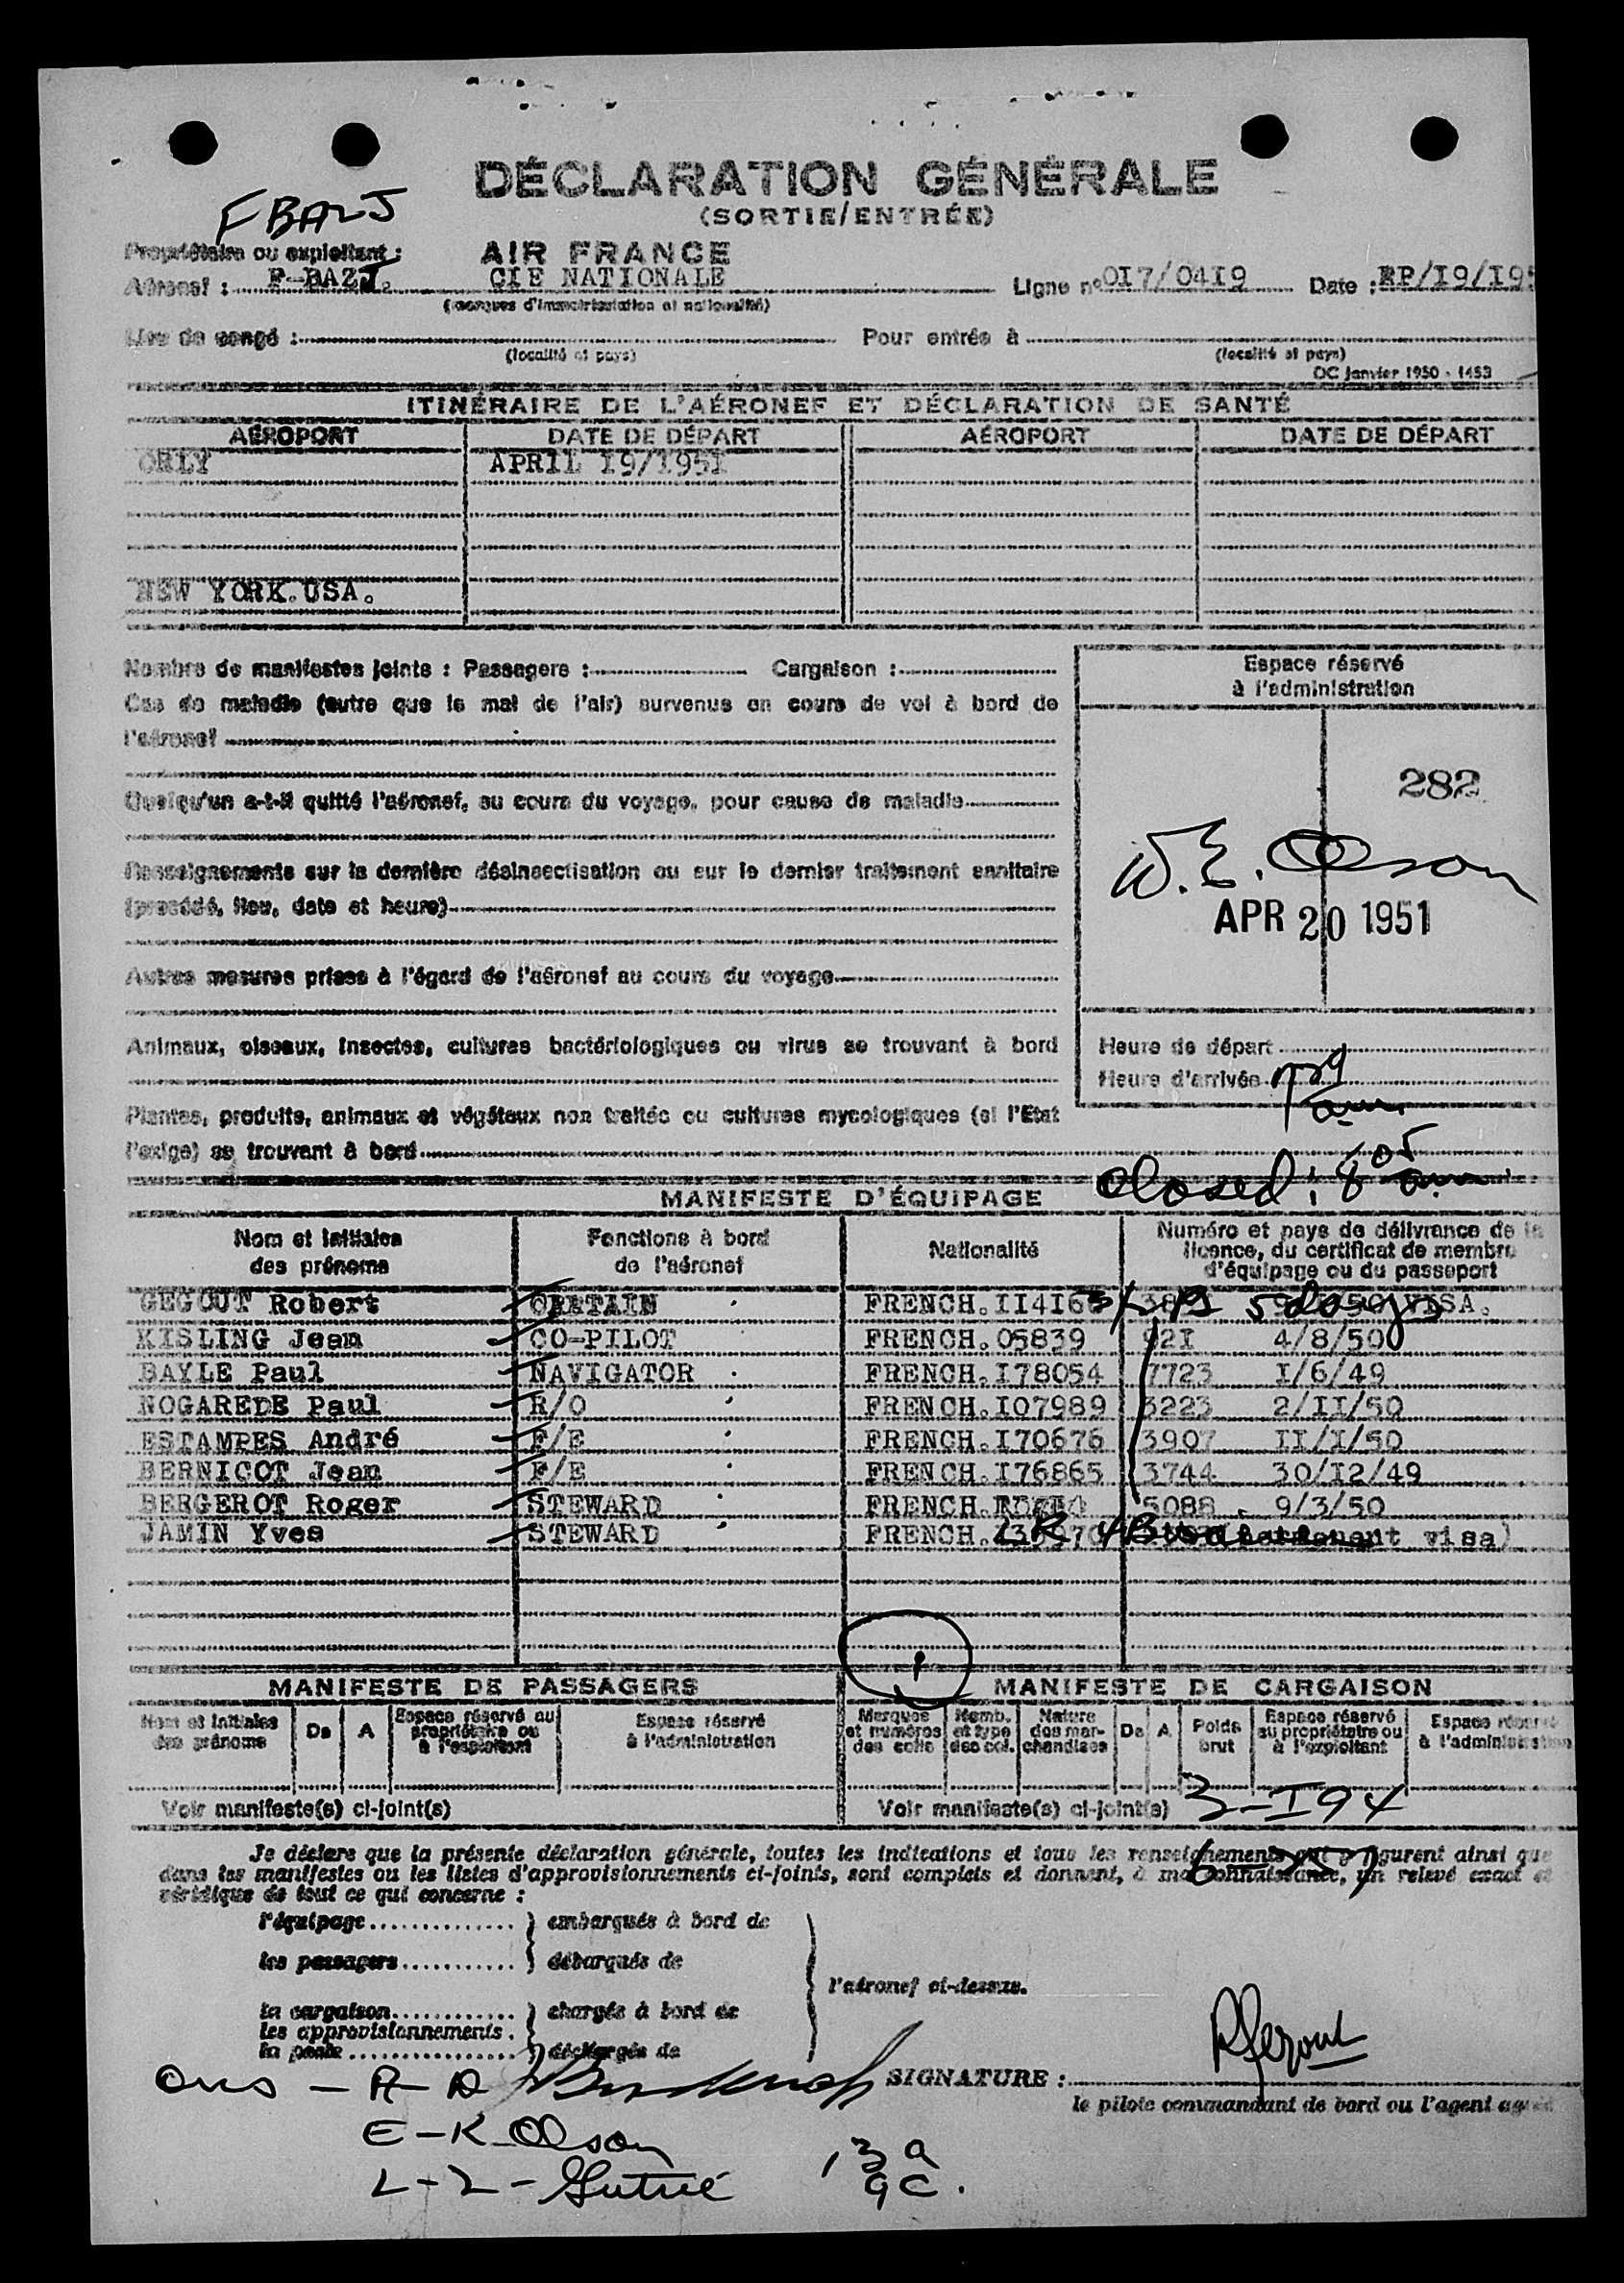 DÉCLARATION GÉNÉRALE
(SORTIE/ENTRÉE)
FBAZJ
Propriétaire ou exploitant : AIR FRANCE
Aéronef : F-BAZJ. CIE NATIONALE Ligne n° 0I7/04I9 Date : /I9/I95
(marques d'immatriculation et nationalité)
Lieu de congé : Pour entrée à
(localité et pays) (localité et pays)
OC Janvier 1950 - 1453
ITINÉRAIRE DE L'AÉRONEF ET DÉCLARATION DE SANTÉ
AÉROPORT DATE DE DÉPART AÉROPORT DATE DE DÉPART
ORLY APRIL I9/I95I
NEW YORK.USA.
Nombre de manifestes joints : Passagers : Cargaison :
Espace réservé
à l'administration
Cas de maladie (autre que le mal de l'air) survenus en cours de vol à bord de
l'aéronef
282
Quelqu'un a-t-il quitté l'aéronef, au cours du voyage, pour cause de maladie
Renseignements sur la dernière désinsectisation ou sur le dernier traitement sanitaire
(procédé, lieu, date et heure)
W. E. Olson
APR 20 1951
Autres mesures prises à l'égard de l'aéronef au cours du voyage
Animaux, oiseaux, insectes, cultures bactériologiques ou virus se trouvant à bord
Heure de départ
Heure d'arrivée
am
Plantes, produits, animaux et végétaux non traités ou cultures mycologiques (si l'Etat
l'exige) se trouvant à bord
Closed: 8 05 am
MANIFESTE D'ÉQUIPAGE
Nom et initiales
des prénoms
Fonctions à bord
de l'aéronef
Nationalité
Numéro et pays de délivrance de la
licence, du certificat de membre
d'équipage ou du passeport
GEGOUT Robert CAPTAIN FRENCH. days VISA.
KISLING Jean CO-PILOT FRENCH.05839 92I 4/8/50
BAYLE Paul NAVIGATOR FRENCH.I78054 7723 I/6/49
NOGAREDE Paul R/O FRENCH.I07989 3223 2/II/50
ESTAMPES André F/E FRENCH.I70676 3907 II/I/50
BERNICOT Jean F/E FRENCH.I76865 3744 30/I2/49
BERGEROT Roger STEWARD FRENCH. 5088 9/3/50
JAMIN Yves STEWARD FRENCH. visa)
MANIFESTE DE PASSAGERS MANIFESTE DE CARGAISON
Nom et initiales
des prénoms
De A
Espace réservé au
propriétaire ou
à l'exploitant
Espace réservé
à l'administration
Marques
et numéros
des colis
Nomb.
et type
des col.
Nature
des mar-
chandises
De A
Poids
brut
Espace réservé
au propriétaire ou
à l'exploitant
Espace réservé
à l'administration
Voir manifeste(s) ci-joint(s) Voir manifeste(s) ci-joint(s)
Je déclare que la présente déclaration générale, toutes les indications et tous les renseignements qui y figurent ainsi que
dans les manifestes ou les listes d'approvisionnements ci-joints, sont complets et donnent, à ma connaissance, un relevé exact et
véridique de tout ce qui concerne :
l'équipage } embarqués à bord de
les passagers } débarqués de
l'aéronef ci-dessus.
la cargaison } chargés à bord de
les approvisionnements
la poste } déchargés de
SIGNATURE :
le pilote commandant de bord ou l'agent agréé
E-K-Olson